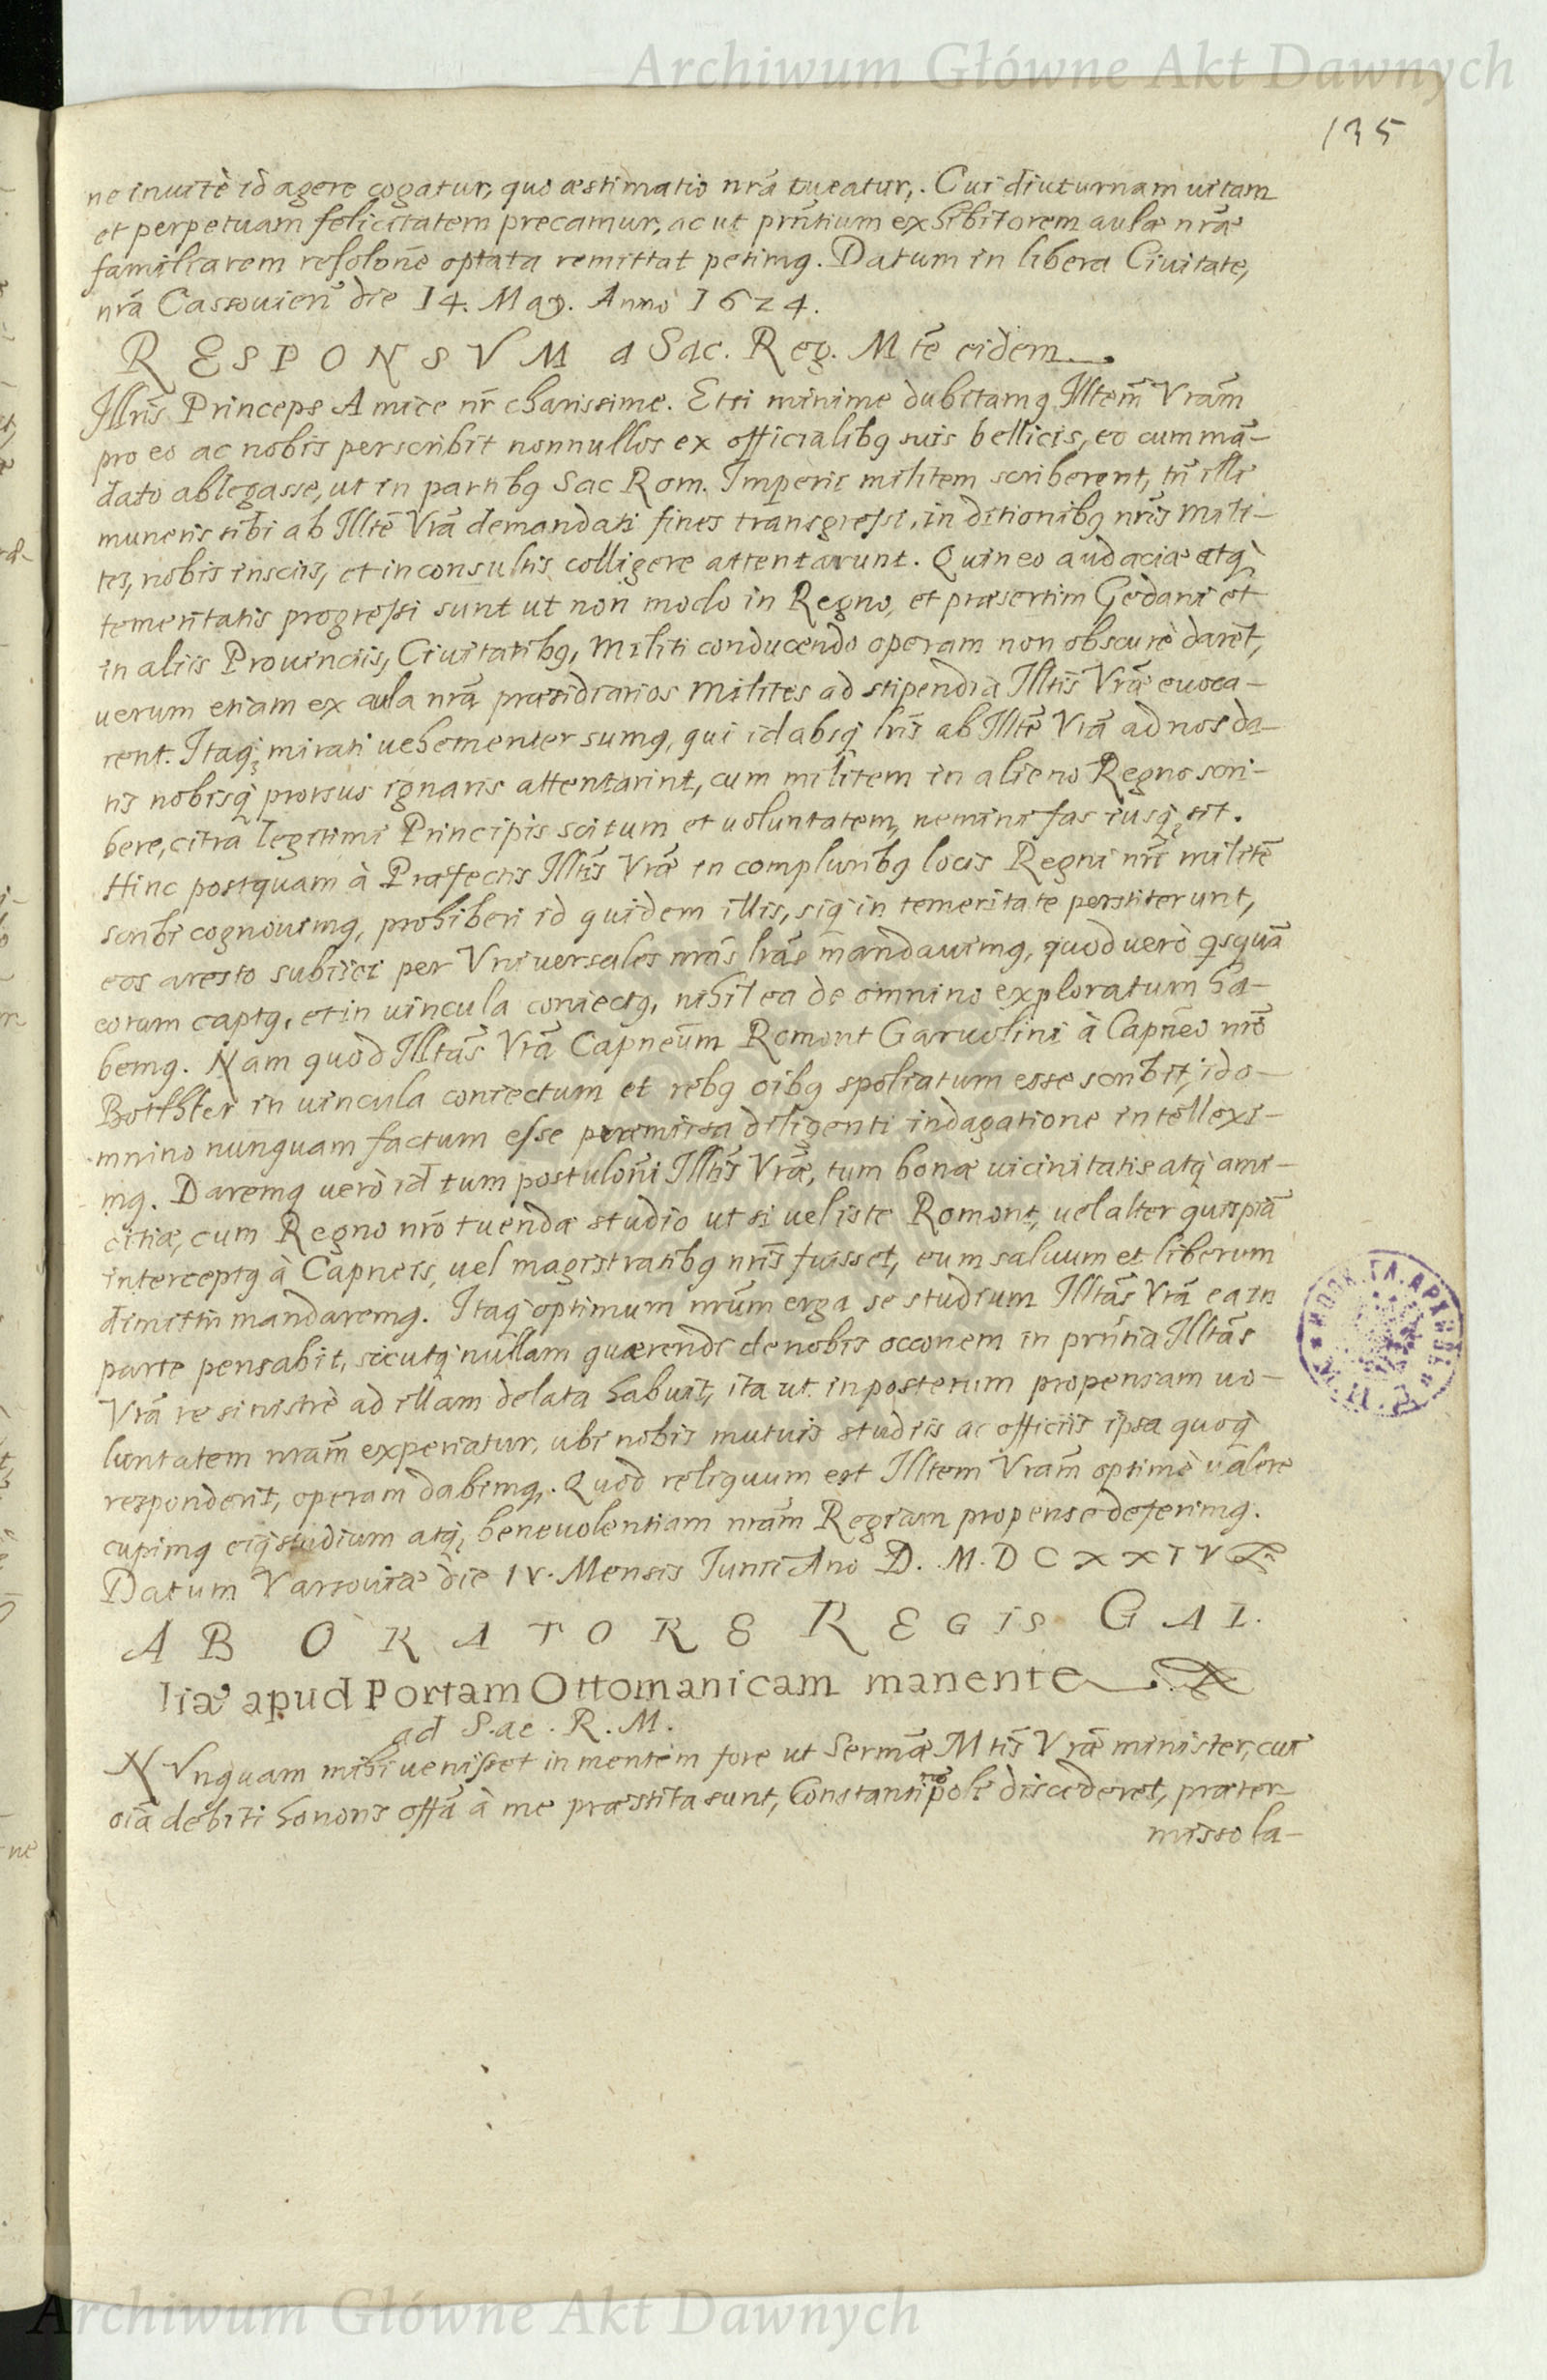 Archiwum Główne Akt Dawnych
135
ne inuitè id agere cogatur, quo æstimatio nrã tueatur,. Cui diuturnam uitam
et perpetuam felicitatem precamur, ac ut prñtium exhibitorem aulæ nrãe
familiarem resolõne optata remittat petimq. Datum in libera Ciuitate,
nrã Cassouieñ die 14. Maÿ. Anno 1624.
RESPONSVM a Sac. Reg. Mtẽ eidem.
Illrĩs Princeps Amice nr̃ charissime. Etsi minime dubitamq Illtem̃ Vrãm
pro eo ac nobis perscribit nonnullos ex officialibq suis bellicis, eo cum mã-
dato ablegasse, ut in partibq Sac Rom. Imperii militem scriberent, tñ illi
muneris sibi ab Illtẽ Vrã demandati fines transgressi, in ditionibq nrĩs mili-
tes, nobis insciis, et inconsultis colligere attentarunt. Quin eo audaciæ atq̃
temeritatis progressi sunt ut non modo in Regno, et præsertim Gedani et
in aliis Prouinciis, Ciuitatibq, militi conducendo operam non obscurè darẽt,
uerum etiam ex aula nrã præsidiarios milites ad stipendia Illtĩs Vrãe euoca-
rent. Itaq̃ mirati uehementer sumq, qui id absq̃ lrĩs ab Illtẽ Vrã ad nos da-
tis nobisq̃ prorsus ignaris attentarint, cum militem in alieno Regno scri-
bere, citra legitimi Principis scitum et uoluntatem, nemini fas iusq̃ sit.
Hinc postquam à Præfectis Illtĩs Vrãe in compluribq locis Regni nrĩ militẽ
scribi cognouimq, prohiberi id quidem illis, siq̃ in temeritate perstiterunt,
eos aresto subiici per Vniuersales nrãs lrãs mandauimq, quod uerò qsquã
eorum captq, et in uincula coniectq, nihil ea de omnino exploratum ha-
bemq. Nam quod Illtãs Vrã Capneũm Romont Garuolini à Capñeo nrõ
Botthler in uincula coniectum et rebq oĩbq spoliatum esse scribit, id o-
mnino nunquam factum esse præmissa diligenti indagatione intellexi-
mq. Daremq uerò id tum postulõni Illtĩs Vrãe, tum bonæ uicinitatis atq̃ ami-
citiæ, cum Regno nrõ tuendæ studio ut si uel iste Romont, uel alter quispiã
interceptq à Capneis, uel magistratibq nrĩs fuisset, eum saluum et liberum
dimitti mandaremq. Itaq̃ optimum nrũm erga se studium Illtãs Vrã ea in
parte pensabit, sicutq̃ nullam quærendi de nobis occõnem in prñtia Illtãs
Vrã re sinistrè ad illam delata habuit, ita ut in posterum propensam uo-
luntatem nrãm experiatur, ubi nobis mutuis studiis ac officiis ipsa quoq̃
responderit, operam dabimq,. Quod reliquum est Illtem Vrãm optimè ualere
cupimq eiq̃ studium atq̃, beneuolentiam nrãm Regiam propense deferimq.
Datum Varsouiæ die IV. Mensis Junii Ano D. M.DCXXIV
AB ORATORE REGIS GAL
liæ apud Portam Ottomanicam manente
ad S.ac. R. M.
NVnquam mihi uenisset in mentem fore ut Sermãe Mtĩs Vrãe minister, cui
oĩa debiti honoris offã à me præstita sunt, Constantinopoli discederet, præter-
misso la-
Archiwum Główne Akt Dawnych